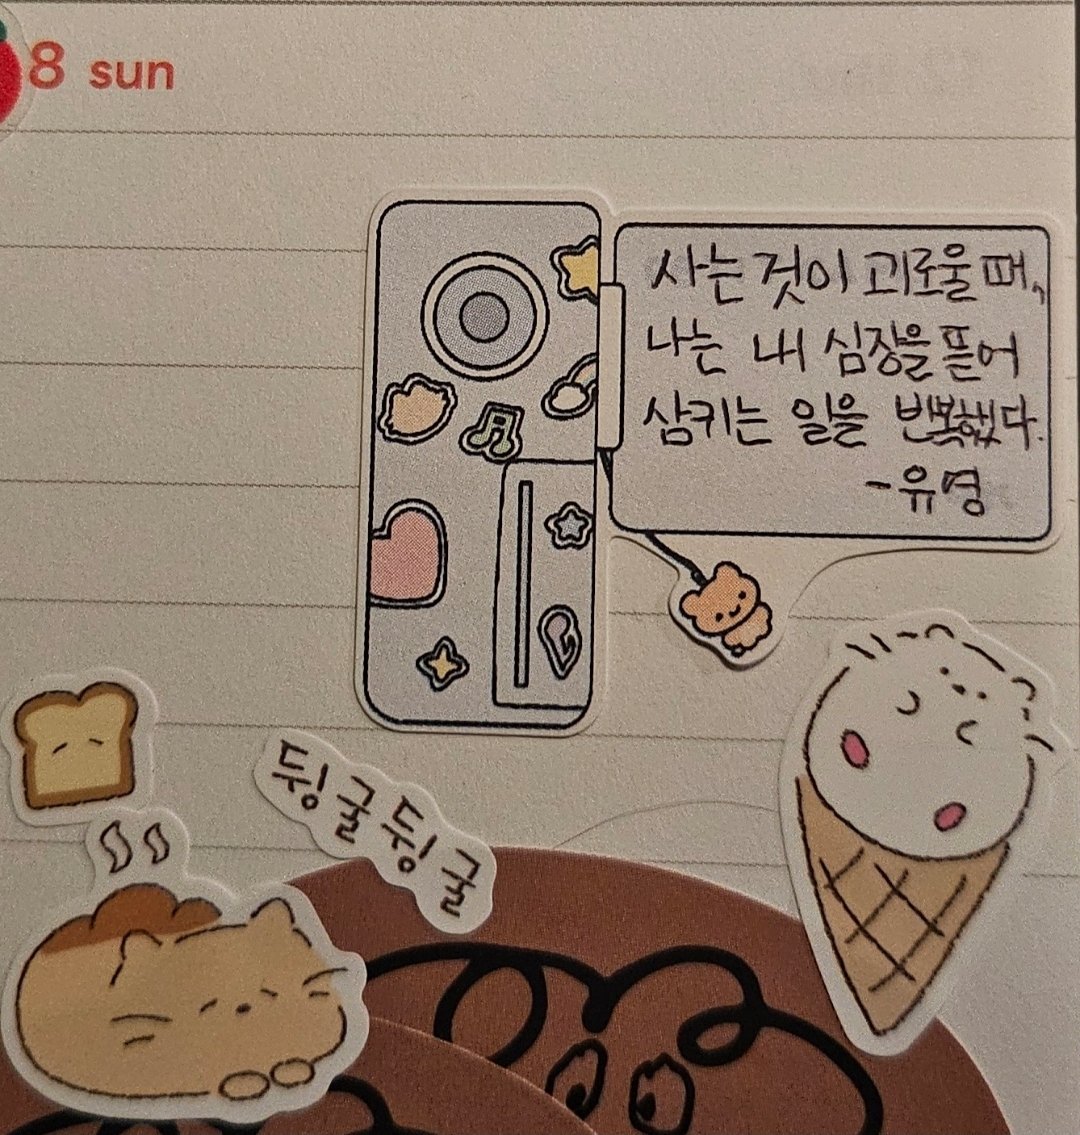 8 sun
사는 것이 괴로울 때,
나는 내 심장을 뜯어
삼키는 일을 반복했다.
-유영
뒹굴뒹굴